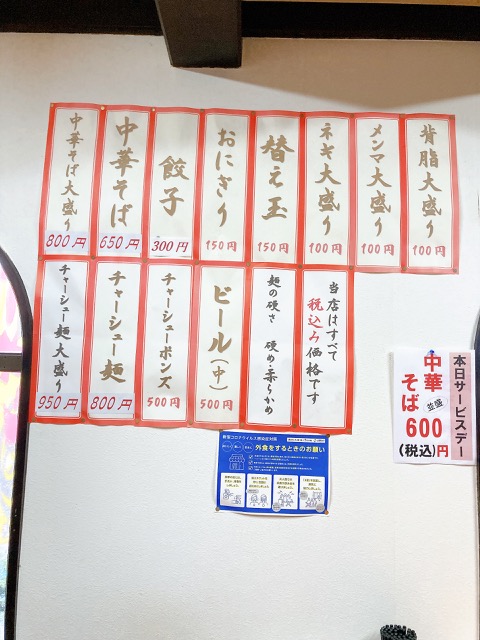 背脂大盛り
100円
メンマ大盛り
100円
ネギ大盛り
100円
替え玉
150円
おにぎり
150円
餃子
300円
中華そば
650円
中華そば大盛り
800円
当店はすべて
税込み価格です
麺の硬さ 硬め・柔らかめ
ビール(中)
500円
チャーシューポンズ
500円
チャーシュー麺
800円
チャーシュー麺大盛り
950円
本日サービスデー
中華
並盛
そば600円
(税込)
新型コロナウイルス感染症対策
外食をするときのお願い